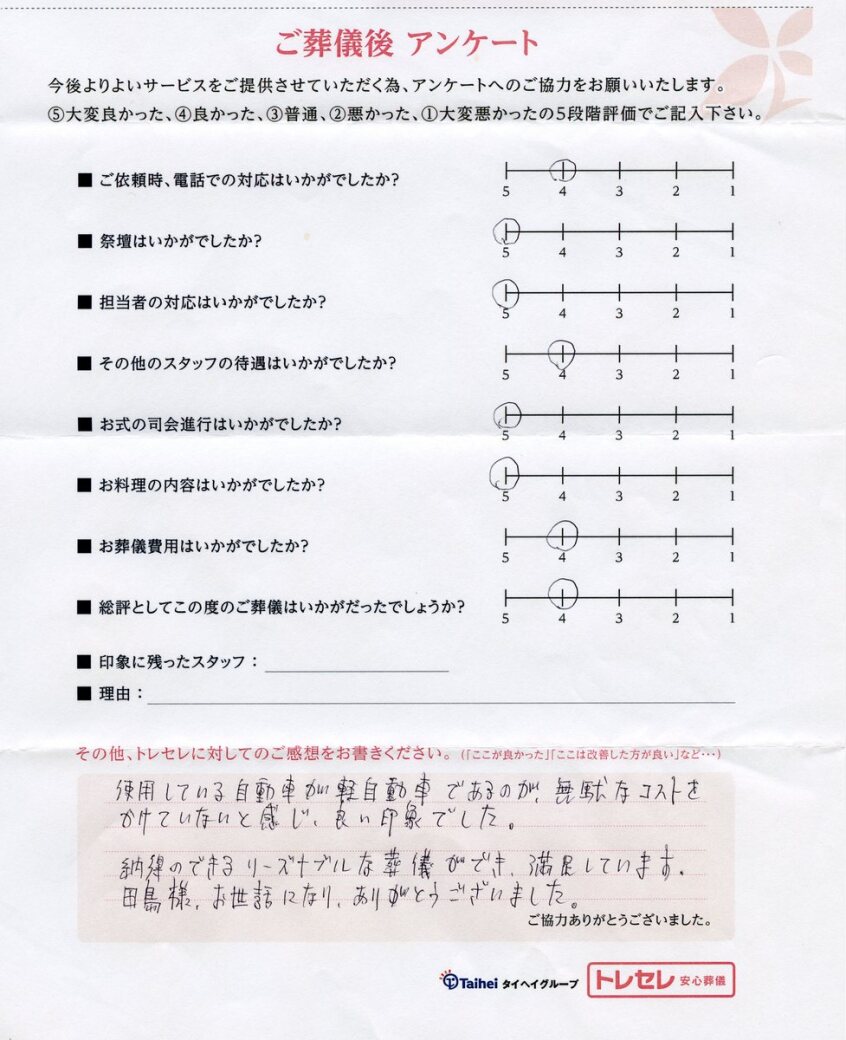 ご葬儀後 アンケート
今後よりよいサービスをご提供させていただく為、アンケートへのご協力をお願いいたします。
⑤大変良かった、④良かった、③普通、②悪かった、①大変悪かったの5段階評価でご記入下さい。
■ ご依頼時、電話での対応はいかがでしたか?
5 4 3 2 1
■ 祭壇はいかがでしたか?
5 4 3 2 1
■ 担当者の対応はいかがでしたか?
5 4 3 2 1
■ その他のスタッフの待遇はいかがでしたか?
5 4 3 2 1
■ お式の司会進行はいかがでしたか?
5 4 3 2 1
■ お料理の内容はいかがでしたか?
5 4 3 2 1
■ お葬儀費用はいかがでしたか?
5 4 3 2 1
■ 総評としてこの度のご葬儀はいかがだったでしょうか?
5 4 3 2 1
■ 印象に残ったスタッフ：
■ 理由：
その他、トレセレに対してのご感想をお書きください。(「ここが良かった」「ここは改善した方が良い」など…)
使用している自動車が軽自動車であるのが、無駄なコストを
かけていないと感じ、良い印象でした。
納得のできるリーズナブルな葬儀ができ、満足しています。
田島様、お世話になり、ありがとうございました。
ご協力ありがとうございました。
Taihei タイヘイグループ トレセレ 安心葬儀